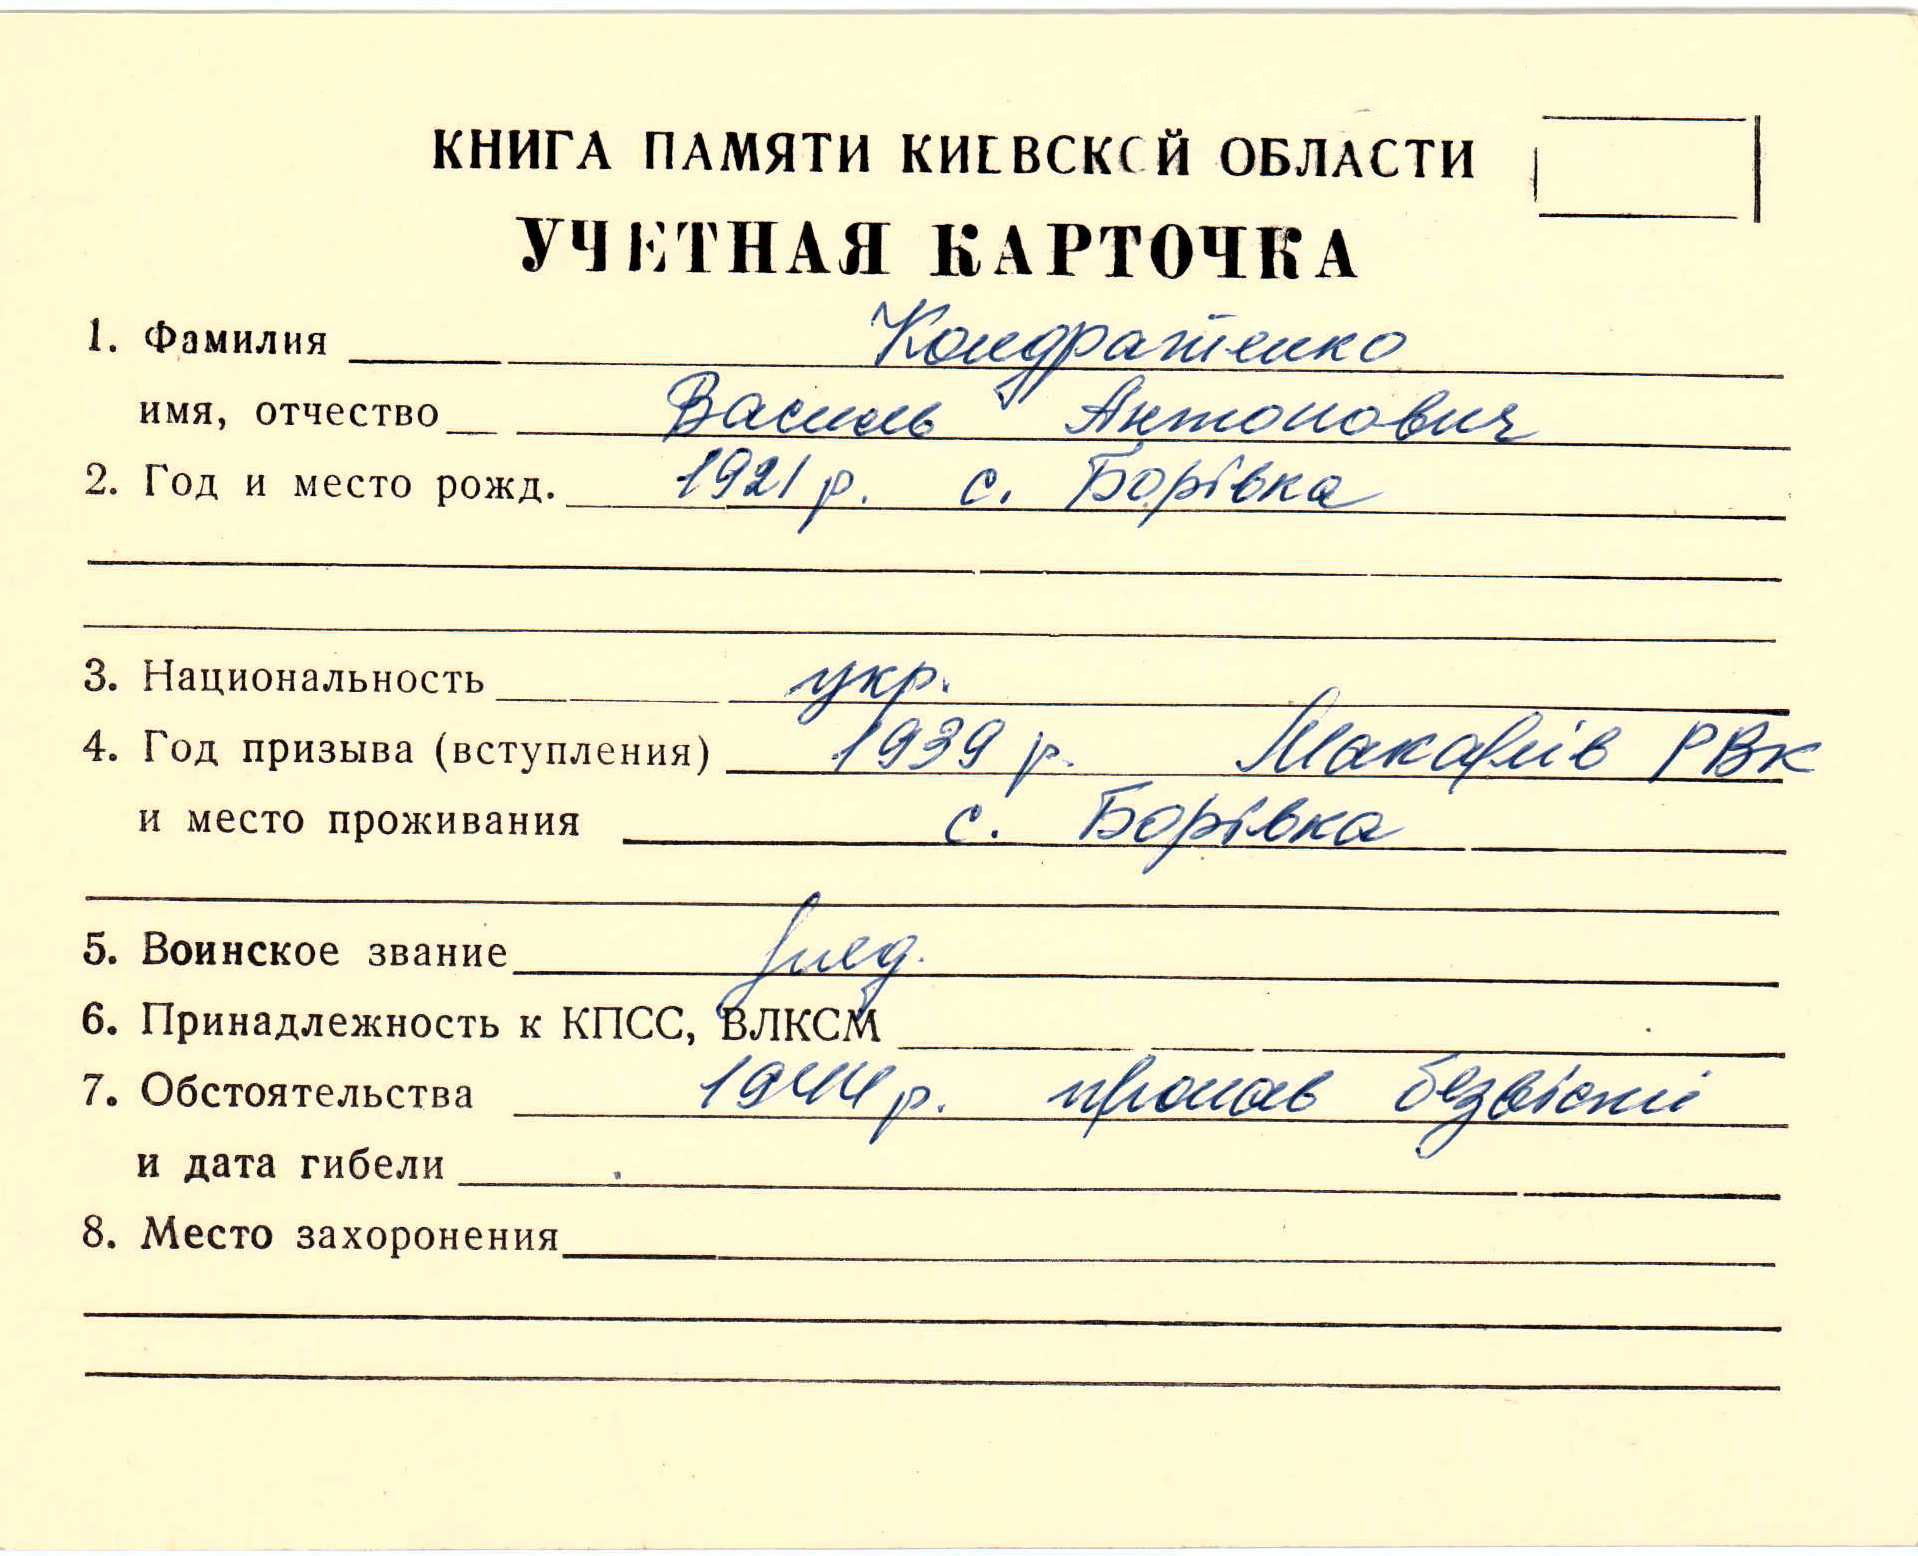 КНИГА ПАМЯТИ КИЕВСКОЙ ОБЛАСТИ
УЧЕТНАЯ КАРТОЧКА
1. Фамилия Кондратенко
имя, отчество Василь Антонович
2. Год и место рожд. 1921 р. с. Борівка
3. Национальность укр.
4. Год призыва (вступления) 1939 р. Макарів РВК
и место проживания с. Борівка
5. Воинское звание
6. Принадлежность к КПСС, ВЛКСМ
7. Обстоятельства 1944 р. пропав безвісти
и дата гибели
8. Место захоронения